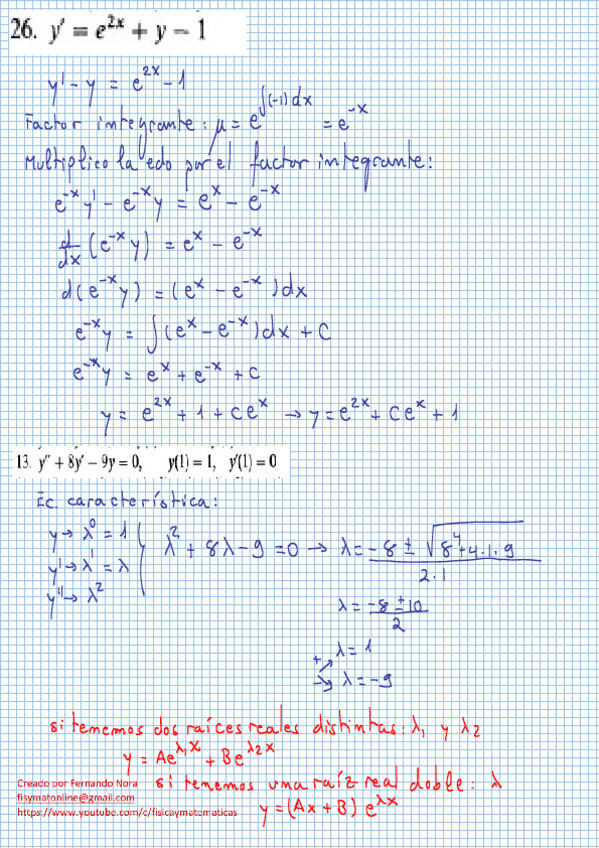 26. y' = e^{2x} + y − 1
y' − y = e^{2x} − 1
Factor integrante: μ = e^{∫(−1)dx} = e^{−x}
Multiplico la edo por el factor integrante:
e^{−x}y' − e^{−x}y = e^x − e^{−x}
d/dx (e^{−x}y) = e^x − e^{−x}
d(e^{−x}y) = (e^x − e^{−x})dx
e^{−x}y = ∫(e^x − e^{−x})dx + C
e^{−x}y = e^x + e^{−x} + C
y = e^{2x} + 1 + Ce^x → y = e^{2x} + Ce^x + 1
13. y'' + 8y' − 9y = 0, y(1) = 1, y'(1) = 0
Ec. característica:
y → λ^0 = 1
y' → λ^1 = λ
y'' → λ^2
λ^2 + 8λ − 9 = 0 → λ = (−8 ± √(8^2 + 4·1·9)) / (2·1)
λ = (−8 ± 10) / 2
+ λ = 1
− λ = −9
si tenemos dos raíces reales distintas: λ₁ y λ₂
y = Ae^{λ₁x} + Be^{λ₂x}
si tenemos una raíz real doble: λ
y = (Ax + B) e^{λx}
Creado por Fernando Nora
fisymatonline@gmail.com
https://www.youtube.com/c/fisicaymatematicas